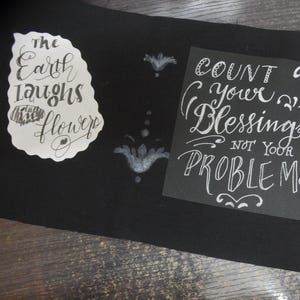 The
Earth
Laughs
flowers
COUNT
your
Blessings
NOT YOUR
PROBLEM